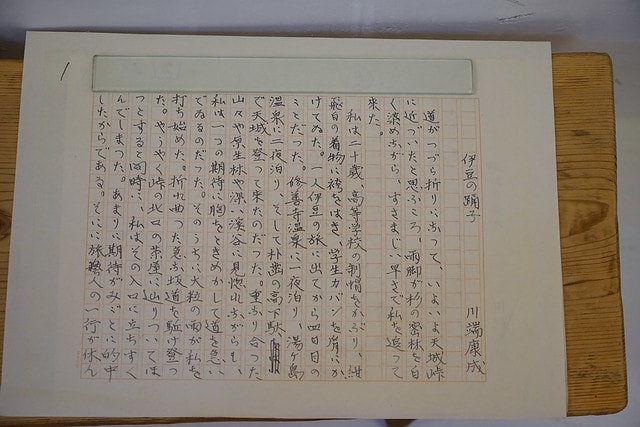 伊豆の踊子
川端康成
道がつづら折りになって、いよいよ天城峠
に近づいたと思ふころ、雨脚が杉の密林を白
く染めながら、すさまじい早さで私を追って
来た。
私は二十歳、高等学校の制帽をかぶり、紺
飛白の着物に袴をはき、学生カバンを肩にか
けてゐた。一人伊豆の旅に出てから四日目の
ことだった。修善寺温泉に一夜泊り、湯ヶ島
温泉に二夜泊り、そして朴歯の高下駄
で天城を登って来たのだった。重なり合った
山々や原生林や深い渓谷に見惚れながらも、
私は一つの期待に胸をときめかして道を急い
でゐるのだった。そのうちに大粒の雨が私を
打ち始めた。折れ曲った急な坂道を駈け登っ
た。やうやく峠の北口の茶屋に辿りついてほ
っとすると同時に、私はその入口に立ちすく
んでしまった。あまりに期待がみごとに的中
したからである。そこに旅藝人の一行が休ん
1